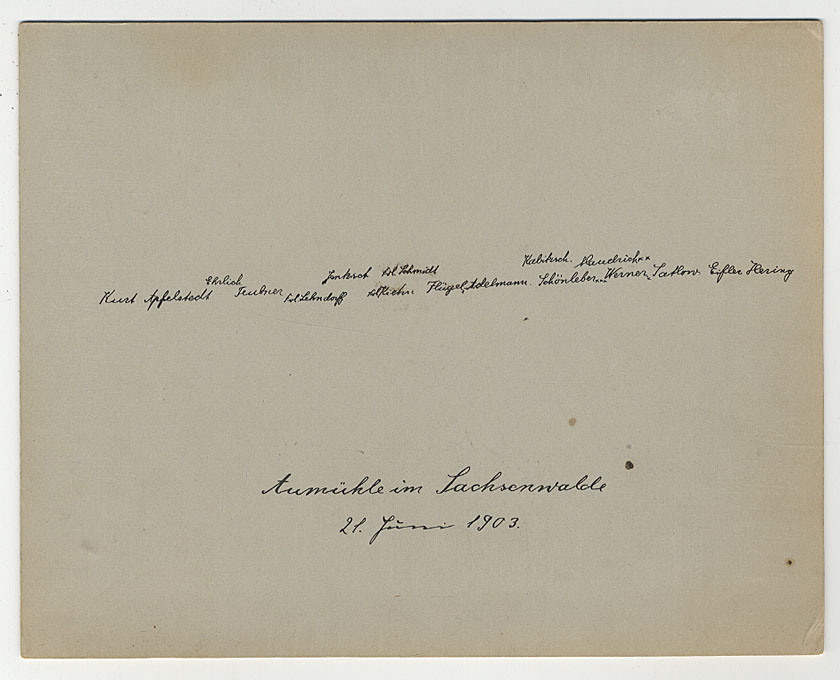 Ehrlich Jenksch Frl. Schmidt Kubiksch.
Kurt Apfelstedt Teubner Frl. Lehndorff Frl. Flügel, Adelmann. Schönleber Werner, Eifler Hering
Aumühle im Sachsenwalde
21. Juni 1903.